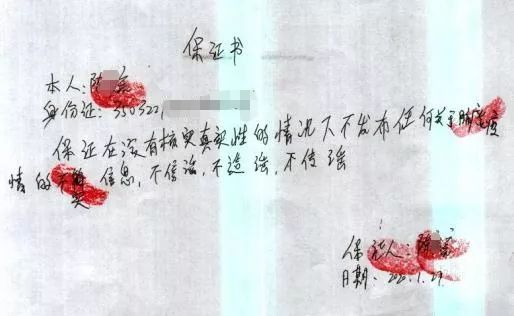 保证书
本人：陈
身份证：350322
保证在没有核实真实性的情况下不发布任何关于肺炎疫
情的不实信息，不信谣，不造谣，不传谣
保证人：陈
日期：2020.1.27